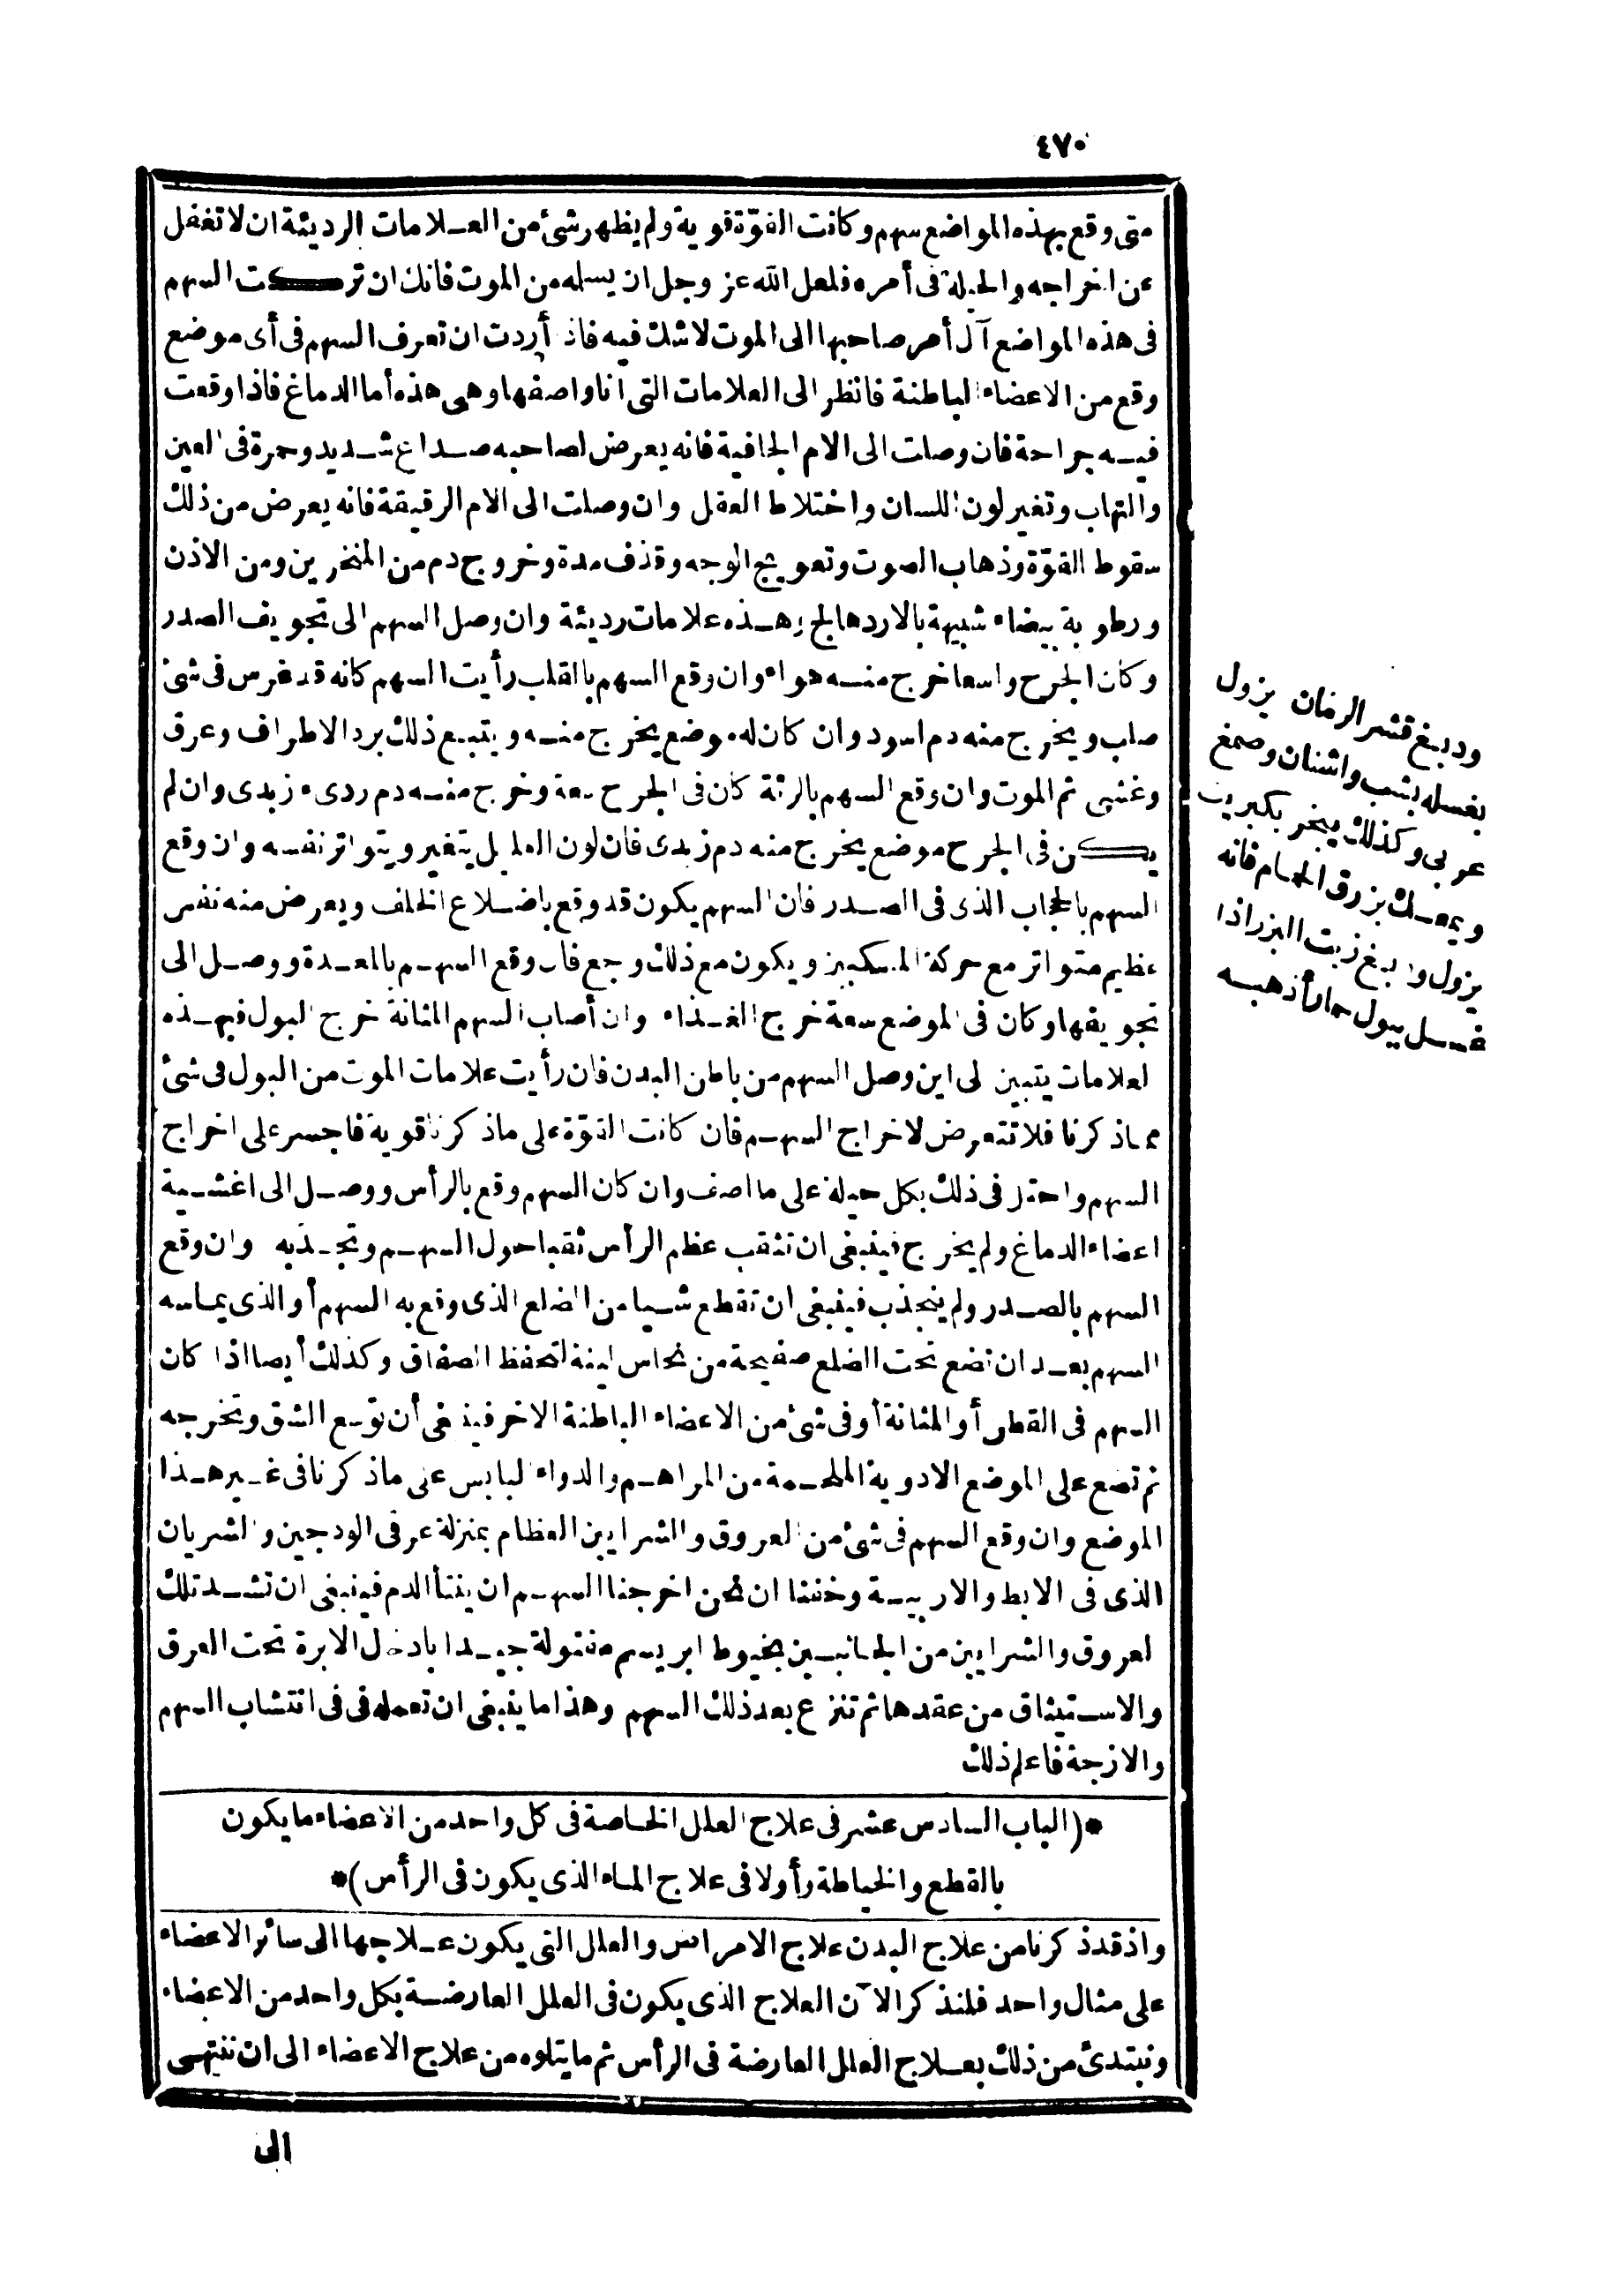 ٤٧٠
متى وقع بهذه المواضع سهم وكانت القوّة قوية ولم يظهر شئ من العلامات الرديئة ان لا تغفل
عن اخراجه والحيلة فى أمره فلعل الله عز وجل ان يسله من الموت فانك ان تركت السهم
فى هذه المواضع آل أمر صاحبها الى الموت لا شك فيه فاذ أردت ان تعرف السهم فى أى موضع
وقع من الاعضاء الباطنة فانظر الى العلامات التى انا واصفها وهى هذه أما الدماغ فاذا وقعت
فيه جراحة فان وصلت الى الام الجافية فانه يعرض لصاحبه صداع شديد وحمرة فى العين
والتهاب وتغير لون اللسان واختلاط العقل وان وصلت الى الام الرقيقة فانه يعرض من ذلك
سقوط القوّة وذهاب الصوت وتعويج الوجه وقذف مدة وخروج دم من المنخرين ومن الاذن
ورطوبة بيضاء شبيهة بالاردهالج وهذه علامات رديئة وان وصل السهم الى تجويف الصدر
وكان الجرح واسعا خرج منه هواء وان وقع السهم بالقلب رأيت السهم كانه قد غرس فى شئ
صلب ويخرج منه دم اسود وان كان له موضع يخرج منه ويتبع ذلك برد الاطراف وعرق
وغشى ثم الموت وان وقع السهم بالرئة كان فى الجرح سعة وخرج منه دم ردىء زبدى وان لم
يكن فى الجرح موضع يخرج منه دم زبدى فان لون العليل يتغير ويتواتر نفسه وان وقع
السهم بالحجاب الذى فى الصدر فان السهم يكون قد وقع باضلاع الخلف ويعرض منه نفس
عظيم متواتر مع حركة المنكبين ويكون مع ذلك وجع فان وقع السهم بالمعدة ووصل الى
تجويفها وكان فى الموضع سعة خرج الغذاء وان أصاب السهم المثانة خرج البول فبهذه
لعلامات يتبين لى اين وصل السهم من باطن البدن فان رأيت علامات الموت من البول فى شئ
مما ذكرنا فلا تتعرض لاخراج السهم فان كانت القوّة على ما ذكرنا قوية فاجسر على اخراج
السهم واحتل فى ذلك بكل حيلة على ما اصف وان كان السهم وقع بالرأس ووصل الى اغشية
اعضاء الدماغ ولم يخرج فينبغى ان تثقب عظم الرأس ثقبا حول السهم وتجذبه وان وقع
السهم بالصدر ولم ينجذب فينبغى ان تقطع شيا من الضلع الذى وقع به السهم أو الذى يماسه
السهم بعد ان تضع تحت الضلع صفيحة من نحاس لينة لتحفظ الصفاق وكذلك أيضا اذا كان
السهم فى القطن أو المثانة أو فى شئ من الاعضاء الباطنة الاخر فينبغى أن توسع الشق وتخرجه
ثم تضع على الموضع الادوية الملحمة من المراهم والدواء اليابس على ما ذكرنا فى غير هذا
الموضع وان وقع السهم فى شئ من العروق والشرايين العظام بمنزلة عرقى الودجين والشريان
الذى فى الابط والاربية وخفنا ان نحن اخرجنا السهم ان ينبثأ الدم فينبغى ان تشد تلك
لعروق والشرايين من الجانبين بخيوط ابريسم مفتولة جيدا بادخال الابرة تحت العرق
والاستيثاق من عقدها ثم تنزع بعد ذلك السهم وهذا ما ينبغى ان تعمله فى فى انتشاب السهم
والازجة فاعلم ذلك
*(الباب السادس عشر فى علاج العلل الخاصة فى كل واحد من الاعضاء ما يكون
بالقطع والخياطة وأولا فى علاج الماء الذى يكون فى الرأس)*
واذ قد ذكرنا من علاج البدن علاج الامراض والعلل التى يكون علاجها الى سائر الاعضاء
على مثال واحد فلنذكر الآن العلاج الذى يكون فى العلل العارضة بكل واحد من الاعضاء
ونبتدئ من ذلك بعلاج العلل العارضة فى الرأس ثم ما يتلوه من علاج الاعضاء الى ان ننتهى
الى
ودبغ قشر الرمان يزول
بغسله بشب واشنان وصمغ
عربى وكذلك يبخر بكبريت
ويمعك بزرق الحمام فانه
يزول وا بغ زيت البزر اذا
غسل ببول حمار أذهبه